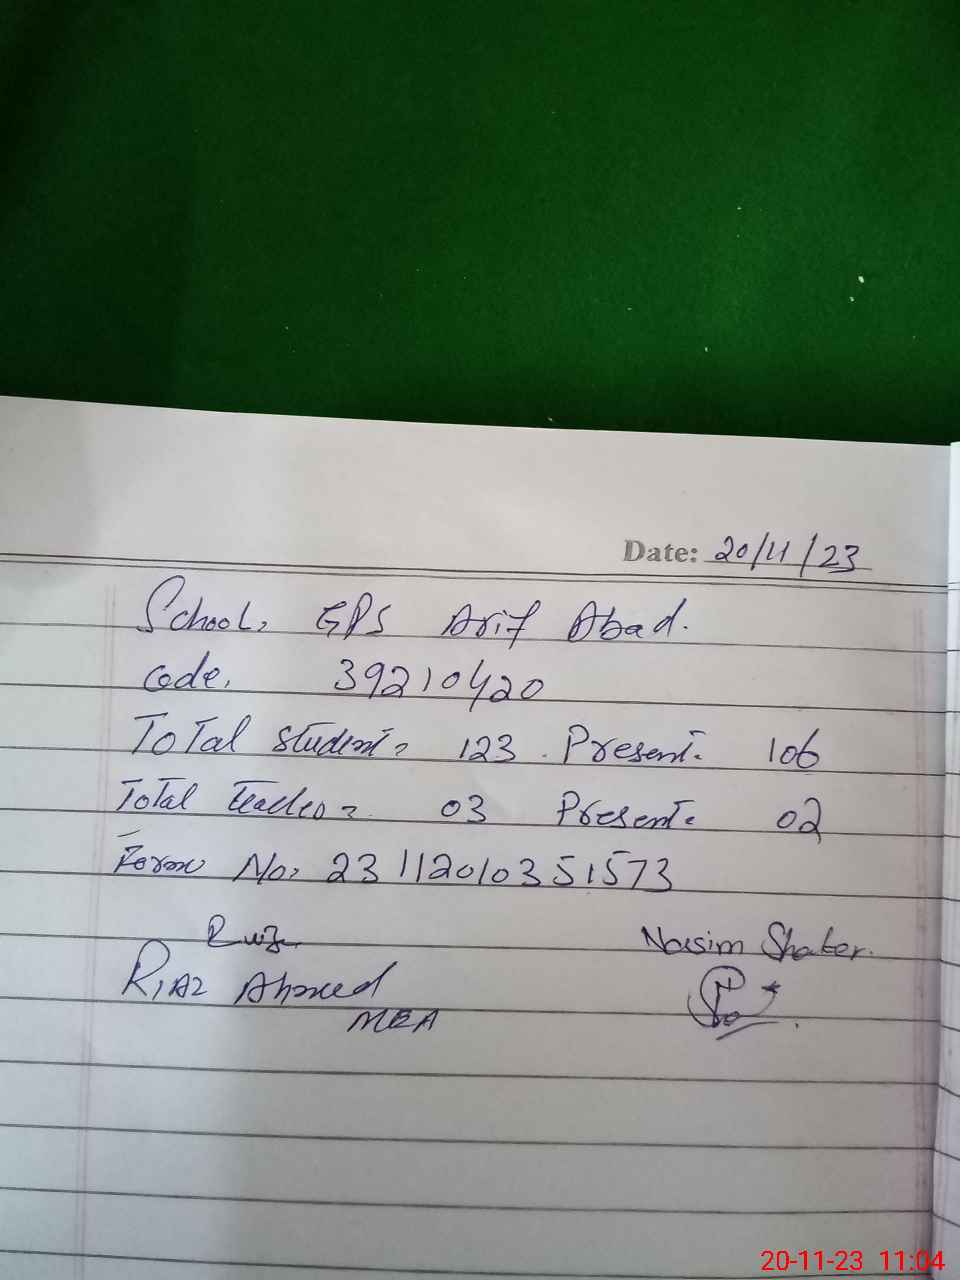 Date: 20/11/23
School, GPS Arif Abad.
code, 39210420
Total student, 123. Present. 106
Total Teacher, 03 Present. 02
Form No, 23112010351573
Riaz Nassim Shaker.
Riaz Ahmed
MEA
20-11-23 11:04